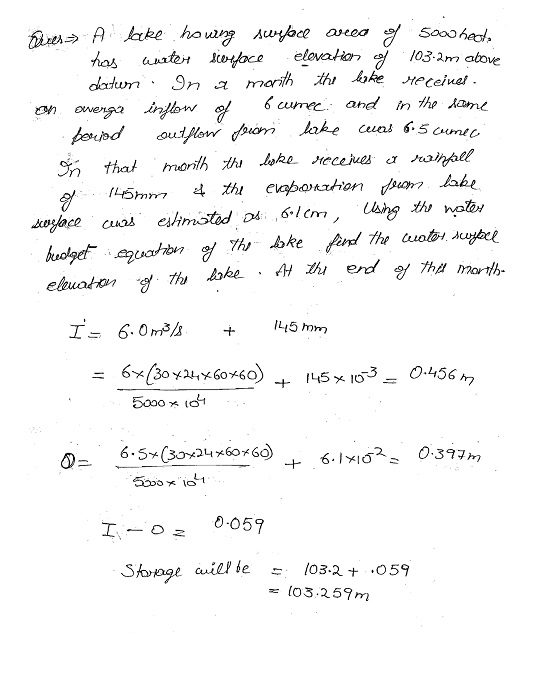 Ques⇒ A lake having surface area of 5000 hect,
has water surface elevation of 103.2m above
datum. In a month the lake receives.
an averga inflow of 6 cumec and in the same
period outflow from lake was 6.5 cumec
In that month the lake receives a rainfall
of 145mm & the evaporation from lake
surface was estimated as 6.1cm, Using the water
budget equation of the lake find the water surface
elevation of the lake. At the end of this month.
I = 6.0 m³/s + 145 mm
= 6×(30×24×60×60) / 5000×10⁴ + 145×10⁻³ = 0.456 m
O = 6.5×(30×24×60×60) / 5000×10⁴ + 6.1×10⁻² = 0.397m
I - O = 0.059
Storage will be = 103.2 + .059
= 103.259m